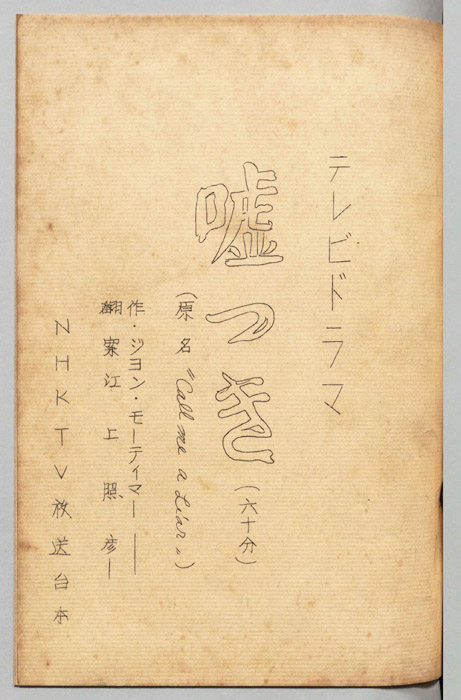 テレビドラマ
嘘つき
(六十分)
(原名 "Call me a Liar")
作・ジヨン・モーティマー
翻案 江上照彦
NHKTV放送台本